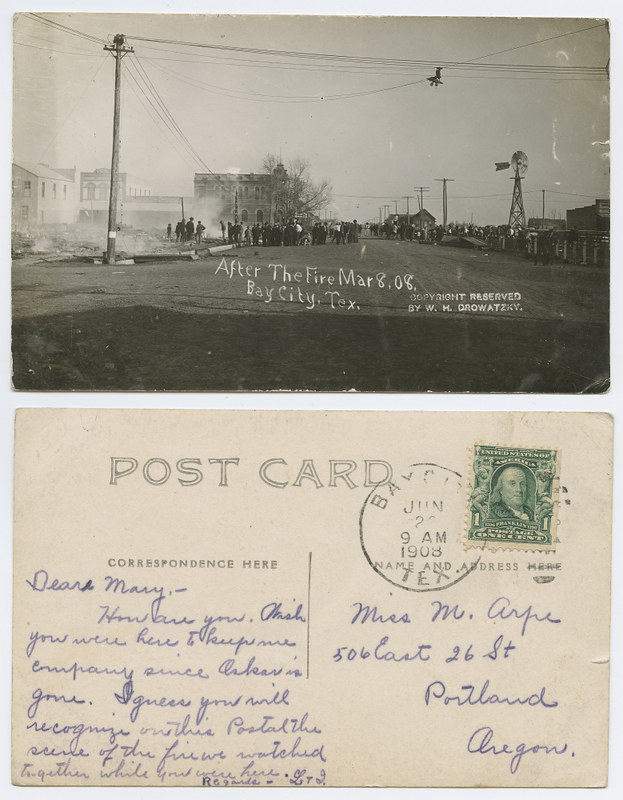 After The Fire Mar 8, 08.
Bay City, Tex.
COPYRIGHT RESERVED
BY W. H. GROWATZKY.
POST CARD
BAY CI
JUN
9 AM
1908
TEX.
UNITED STATES OF
AMERICA
1 FRANKLIN 1
POSTAGE
ONE CENT
CORRESPONDENCE HERE
NAME AND ADDRESS HERE
Dear Mary,-
How are you. Wish
you were here to keep me
company since Oskar is
gone. I guess you will
recognize on this Postal the
scene of the fire we watched
together while you were here.
Regards -
Miss M. Arpe
506 East 26 St
Portland
Oregon.